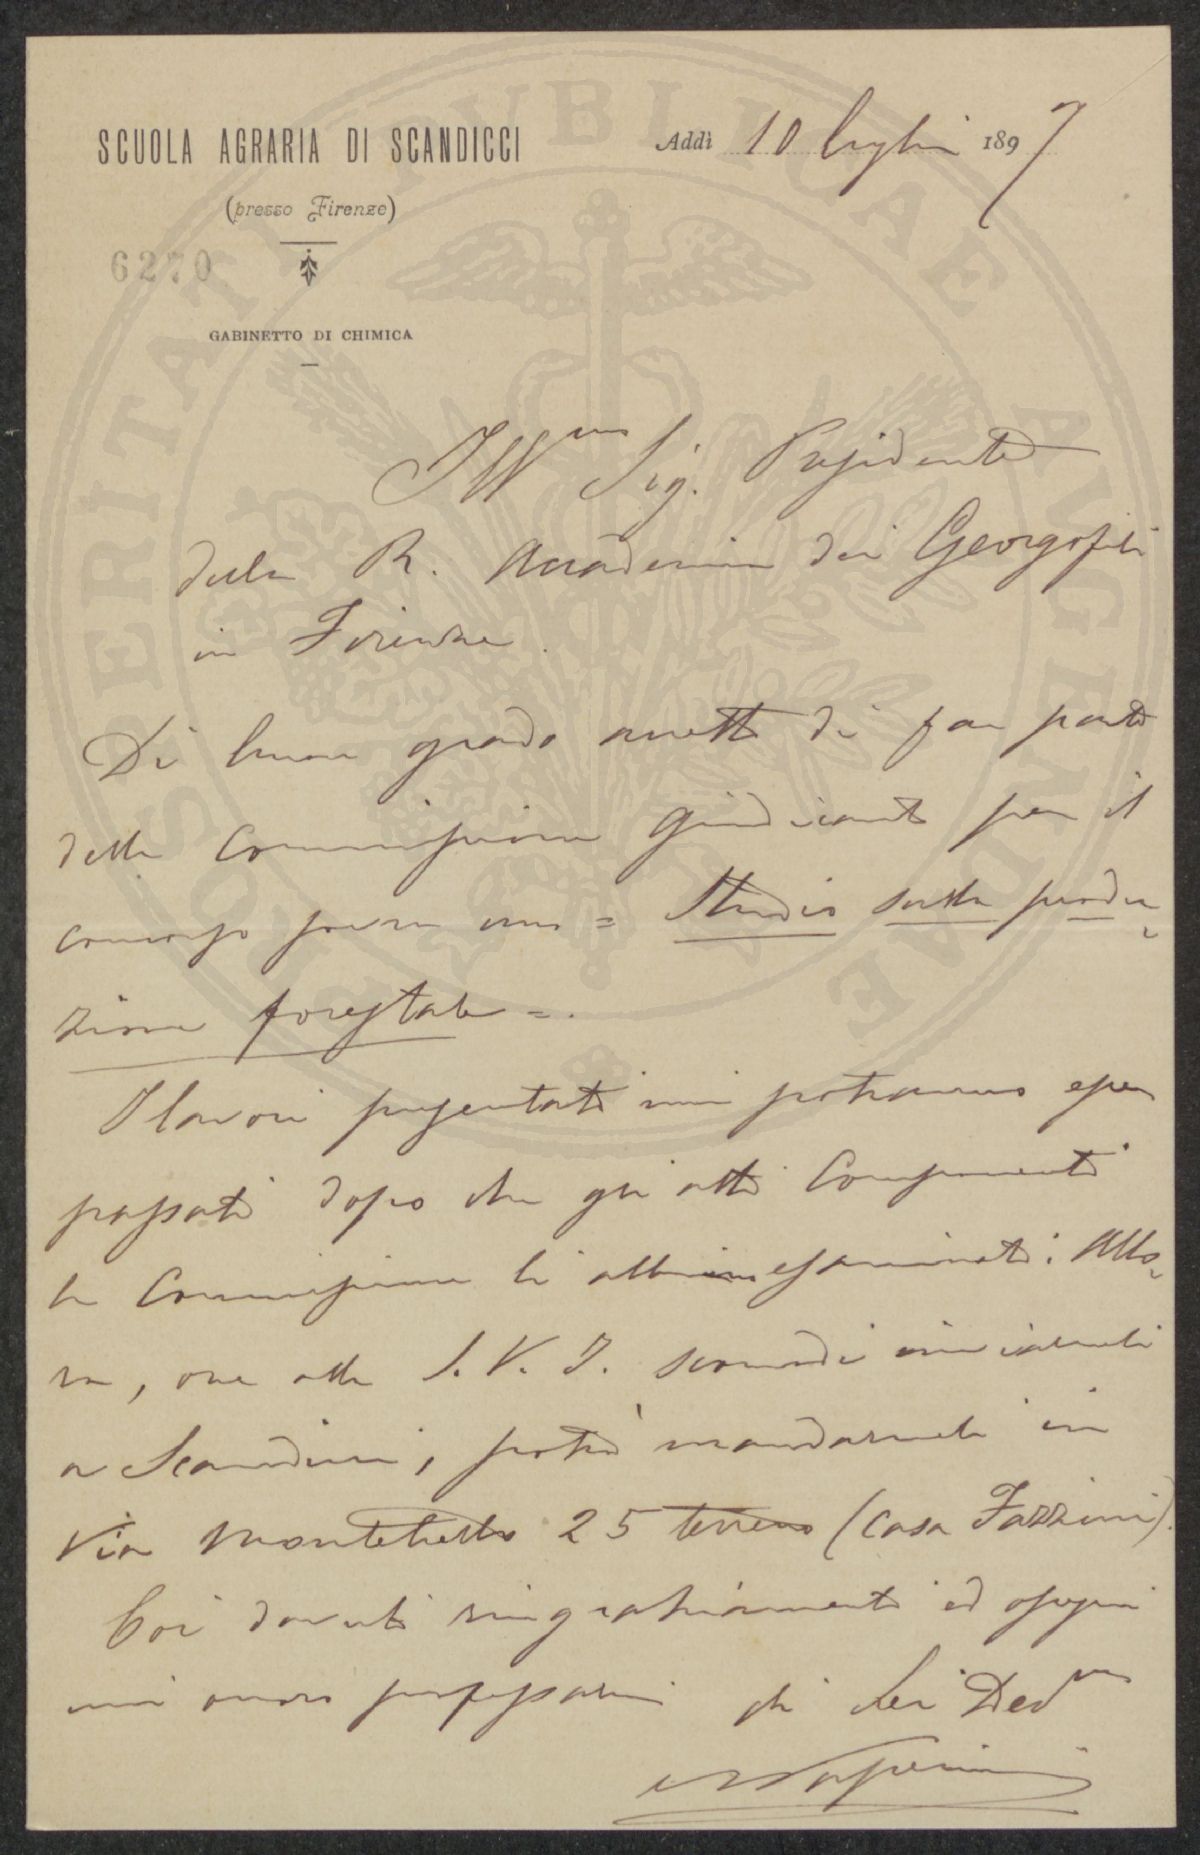 SCUOLA AGRARIA DI SCANDICCI
(presso Firenze)
6270
GABINETTO DI CHIMICA
Addì 10 luglio 1897
Illmo Sig. Presidente
della R. Accademia dei Georgofili
in Firenze.
Di buon grado accetto di far parte
della Commissione giudicante per il
concorso sovra uno = Studio sulla produ-
zione forestale =.
I lavori presentati mi potranno esser
passati dopo che gli altri componenti
la Commissione li abbiano esaminati: Allo-
ra, ove alla S. V. I. scomodi inviarmeli
a Scandicci, potrà mandarmeli in
Via Montebello 25 terreno (casa Fazzini).
Coi dovuti ringraziamenti ed ossequi
mi onoro professarmi di Lei Devmo
PROSPERITATI PUBLICAE AUGENDAE